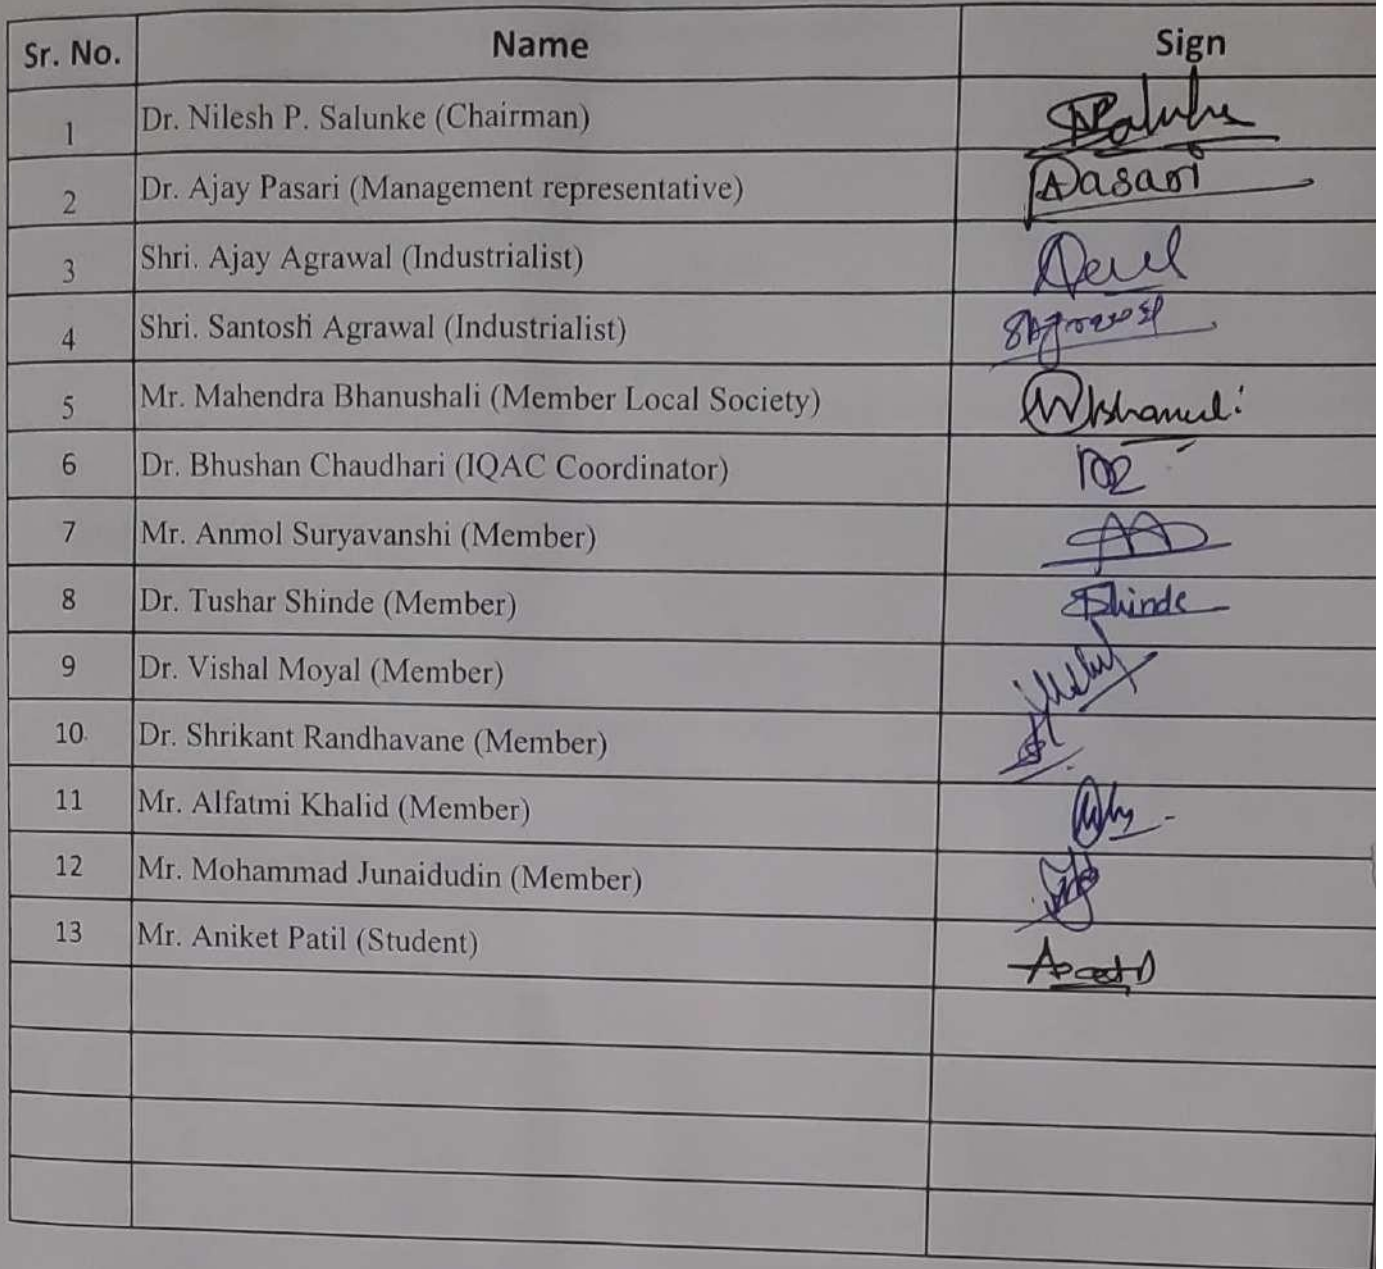 Sr. No. Name Sign
1 Dr. Nilesh P. Salunke (Chairman)
2 Dr. Ajay Pasari (Management representative) Pasari
3 Shri. Ajay Agrawal (Industrialist)
4 Shri. Santosh Agrawal (Industrialist) SAgrawal
5 Mr. Mahendra Bhanushali (Member Local Society)
6 Dr. Bhushan Chaudhari (IQAC Coordinator)
7 Mr. Anmol Suryavanshi (Member)
8 Dr. Tushar Shinde (Member) Shinde
9 Dr. Vishal Moyal (Member)
10 Dr. Shrikant Randhavane (Member)
11 Mr. Alfatmi Khalid (Member)
12 Mr. Mohammad Junaidudin (Member)
13 Mr. Aniket Patil (Student)